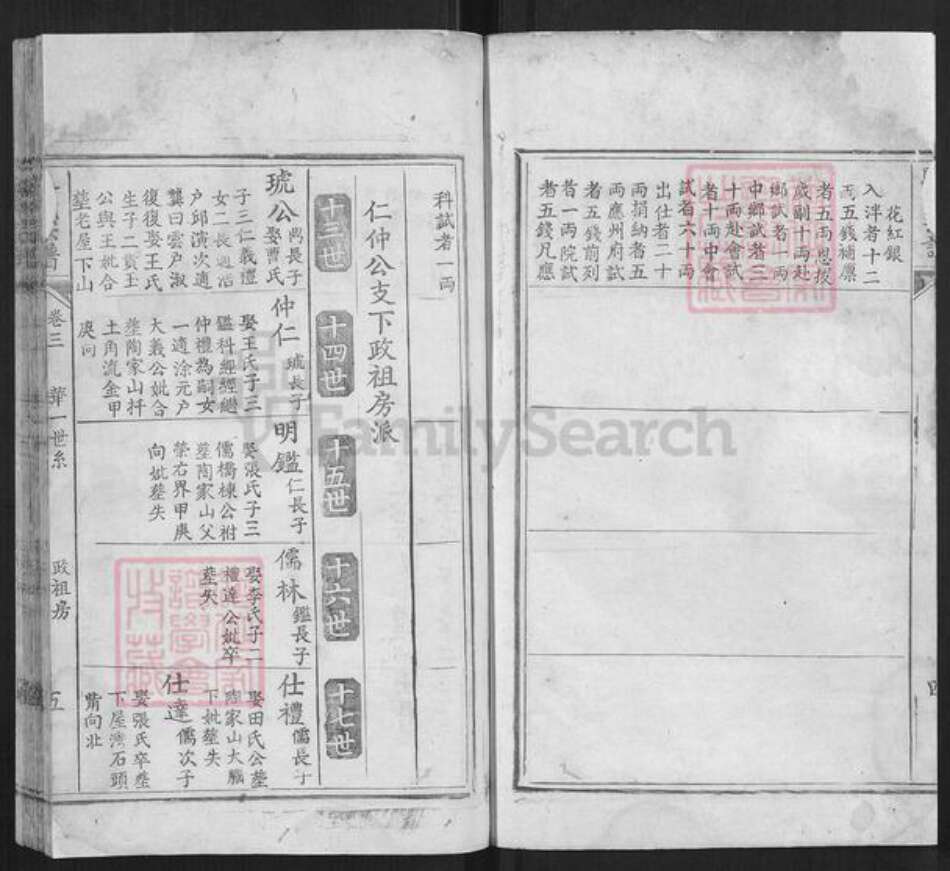 花紅銀
入泮者十二
両五錢補廪
者五両恩拔
歲副十両赴
鄉試者一両
中鄉試者三
十両赴會試
者十両中會
試者六十両
出仕者二十
両捐納者五
両應州府試
者五錢前列
者一両院試
者五錢凡應
科試者一両
仁仲公支下政祖房派
十三世
十四世
十五世
十六世
十七世
琥公
長子
娶曹氏
子三仁義禮
女二長適
户邱演次適
龔曰雲户淑
復復娶王氏
生子二賓玉
公與王妣合
塟老屋下山
仲仁
琥長子
娶王氏子三
鑑科經經繼
仲禮為嗣女
一適涂元户
大義公妣合
塟陶家山扦
土角流金甲
庚向
明鑑
仁長子
娶張氏子三
儒橋棟公祔
塟陶家山父
塋右界甲庚
向妣塟失
儒林
鑑長子
娶李氏子二
禮達公妣卒
塟失
仕禮
儒長子
娶田氏公塟
陶家山大
下妣塟失
仕達
儒次子
娶張氏卒塟
下屋灣石頭
背向北
卷三
華一世系
政祖房
五
四
FamilySearch